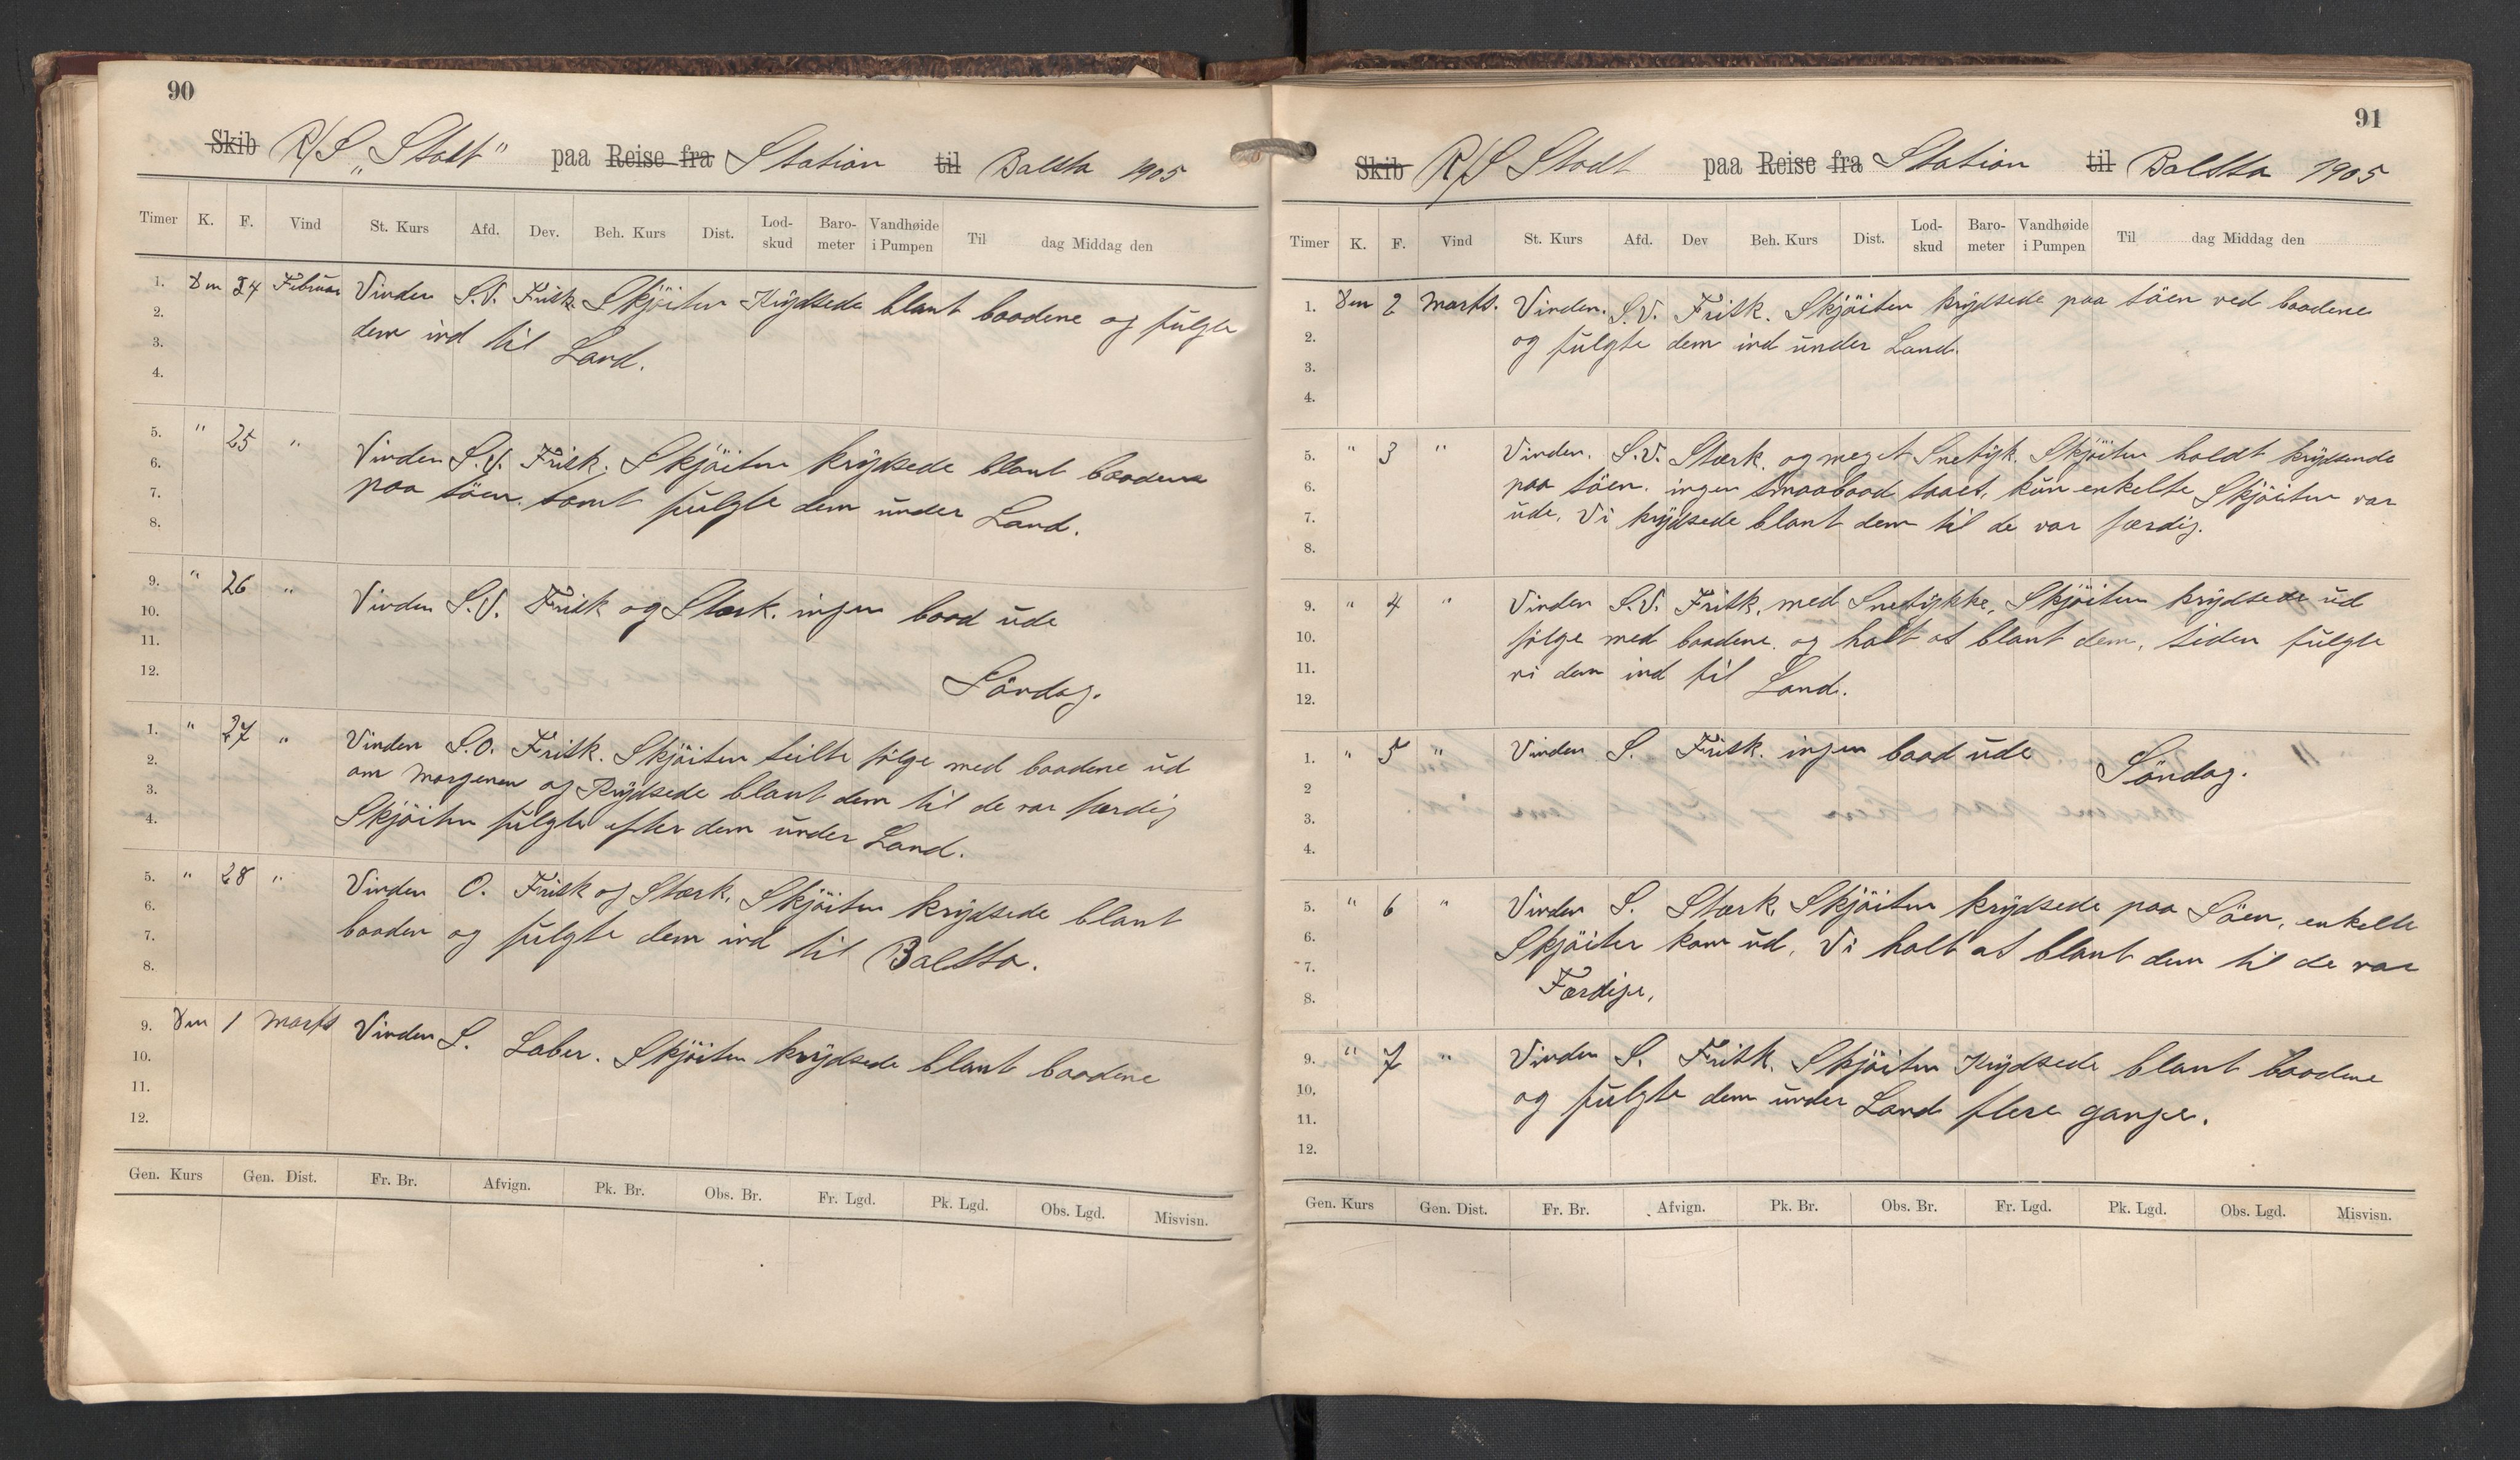 90
Skib R/S „Stadt" paa Reise fra Station til Balsta 1905
Timer K. F. Vind St. Kurs Afd. Dev. Beh. Kurs Dist. Lod-skud Baro-meter Vandhøide i Pumpen Til dag Middag den
1. Den 24 Februar Vinden S.V. Frisk Skjöiten Krydsede blant baadene og fulgte
2. dem ind til Land.
3.
4.
5. " 25 " Vinden S.V. Frisk. Skjöiten krydsede blant baadene
6. paa söen. samt fulgte dem under Land.
7.
8.
9. " 26 " Vinden S.V. Frisk og Stærk. ingen baad ude
10.
11. Söndag.
12.
1. " 27 " Vinden S.O. Frisk. Skjöiten seilte fölge med baadene ud
2. om Morgenen og Krydsede blant dem til de var færdig
3. Skjöiten fulgte efter dem under Land.
4.
5. " 28 " Vinden O. Frisk og Stærk, Skjöiten krydsede blant
6. baaden og fulgte dem ind til Balsta.
7.
8.
9. Den 1 Marts Vinden S. Laber. Skjöiten krydsede blant baadene
10.
11.
12.
Gen. Kurs Gen. Dist. Fr. Br. Afvign. Pk. Br. Obs. Br. Fr. Lgd. Pk. Lgd. Obs. Lgd. Misvisn.
91
Skib R/S Stadt paa Reise fra Station til Balsta 1905
Timer K. F. Vind St. Kurs Afd. Dev Beh. Kurs Dist. Lod-skud Baro-meter Vandhøide i Pumpen Til dag Middag den
1. Den 2 Marts. Vinden. S.V. Frisk. Skjöiten krydsede paa söen ved baadene
2. og fulgte dem ind under Land.
3.
4.
5. " 3 " Vinden. S.V. Stærk. og meget Snetyk. Skjöiten holdt krydsende
6. paa söen. ingen smaabaad saaes, kun enkelte Skjöiter var
7. ude, Vi krydsede blant dem til de var færdig.
8.
9. " 4 " Vinden S.V. Frisk, med Snetykke, Skjöiten krydsede ud
10. fölge med baadene. og halt os blant dem, siden fulgte
11. vi dem ind til Land.
12.
1. " 5 " Vinden S. Frisk. ingen baad ude Söndag.
2
3.
4.
5. " 6 " Vinden S. Stærk, Skjöiten krydsede paa Söen, enkelte
6. Skjöiter kom ud, Vi halt os blant dem til de var
7. Færdige,
8.
9. " 7 " Vinden S. Frisk. Skjöiten Krydsede blant baadene
10. og fulgte dem under Land flere gange.
11.
12.
Gen. Kurs Gen. Dist. Fr. Br. Afvign. Pk. Br. Obs. Br. Fr. Lgd. Pk. Lgd. Obs. Lgd. Misvisn.